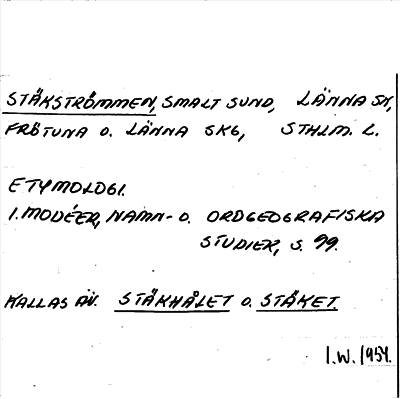 STÄKSTRÖMMEN, SMALT SUND, LÄNNA SN,
FRÖTUNA O. LÄNNA SKG, STHLM. L.
ETYMOLOGI.
I. MODÉER, NAMN- O. ORDGEOGRAFISKA
STUDIER, S. 99.
KALLAS ÄV. STÄKHÅLET O. STÄKET.
I.W. 1954.